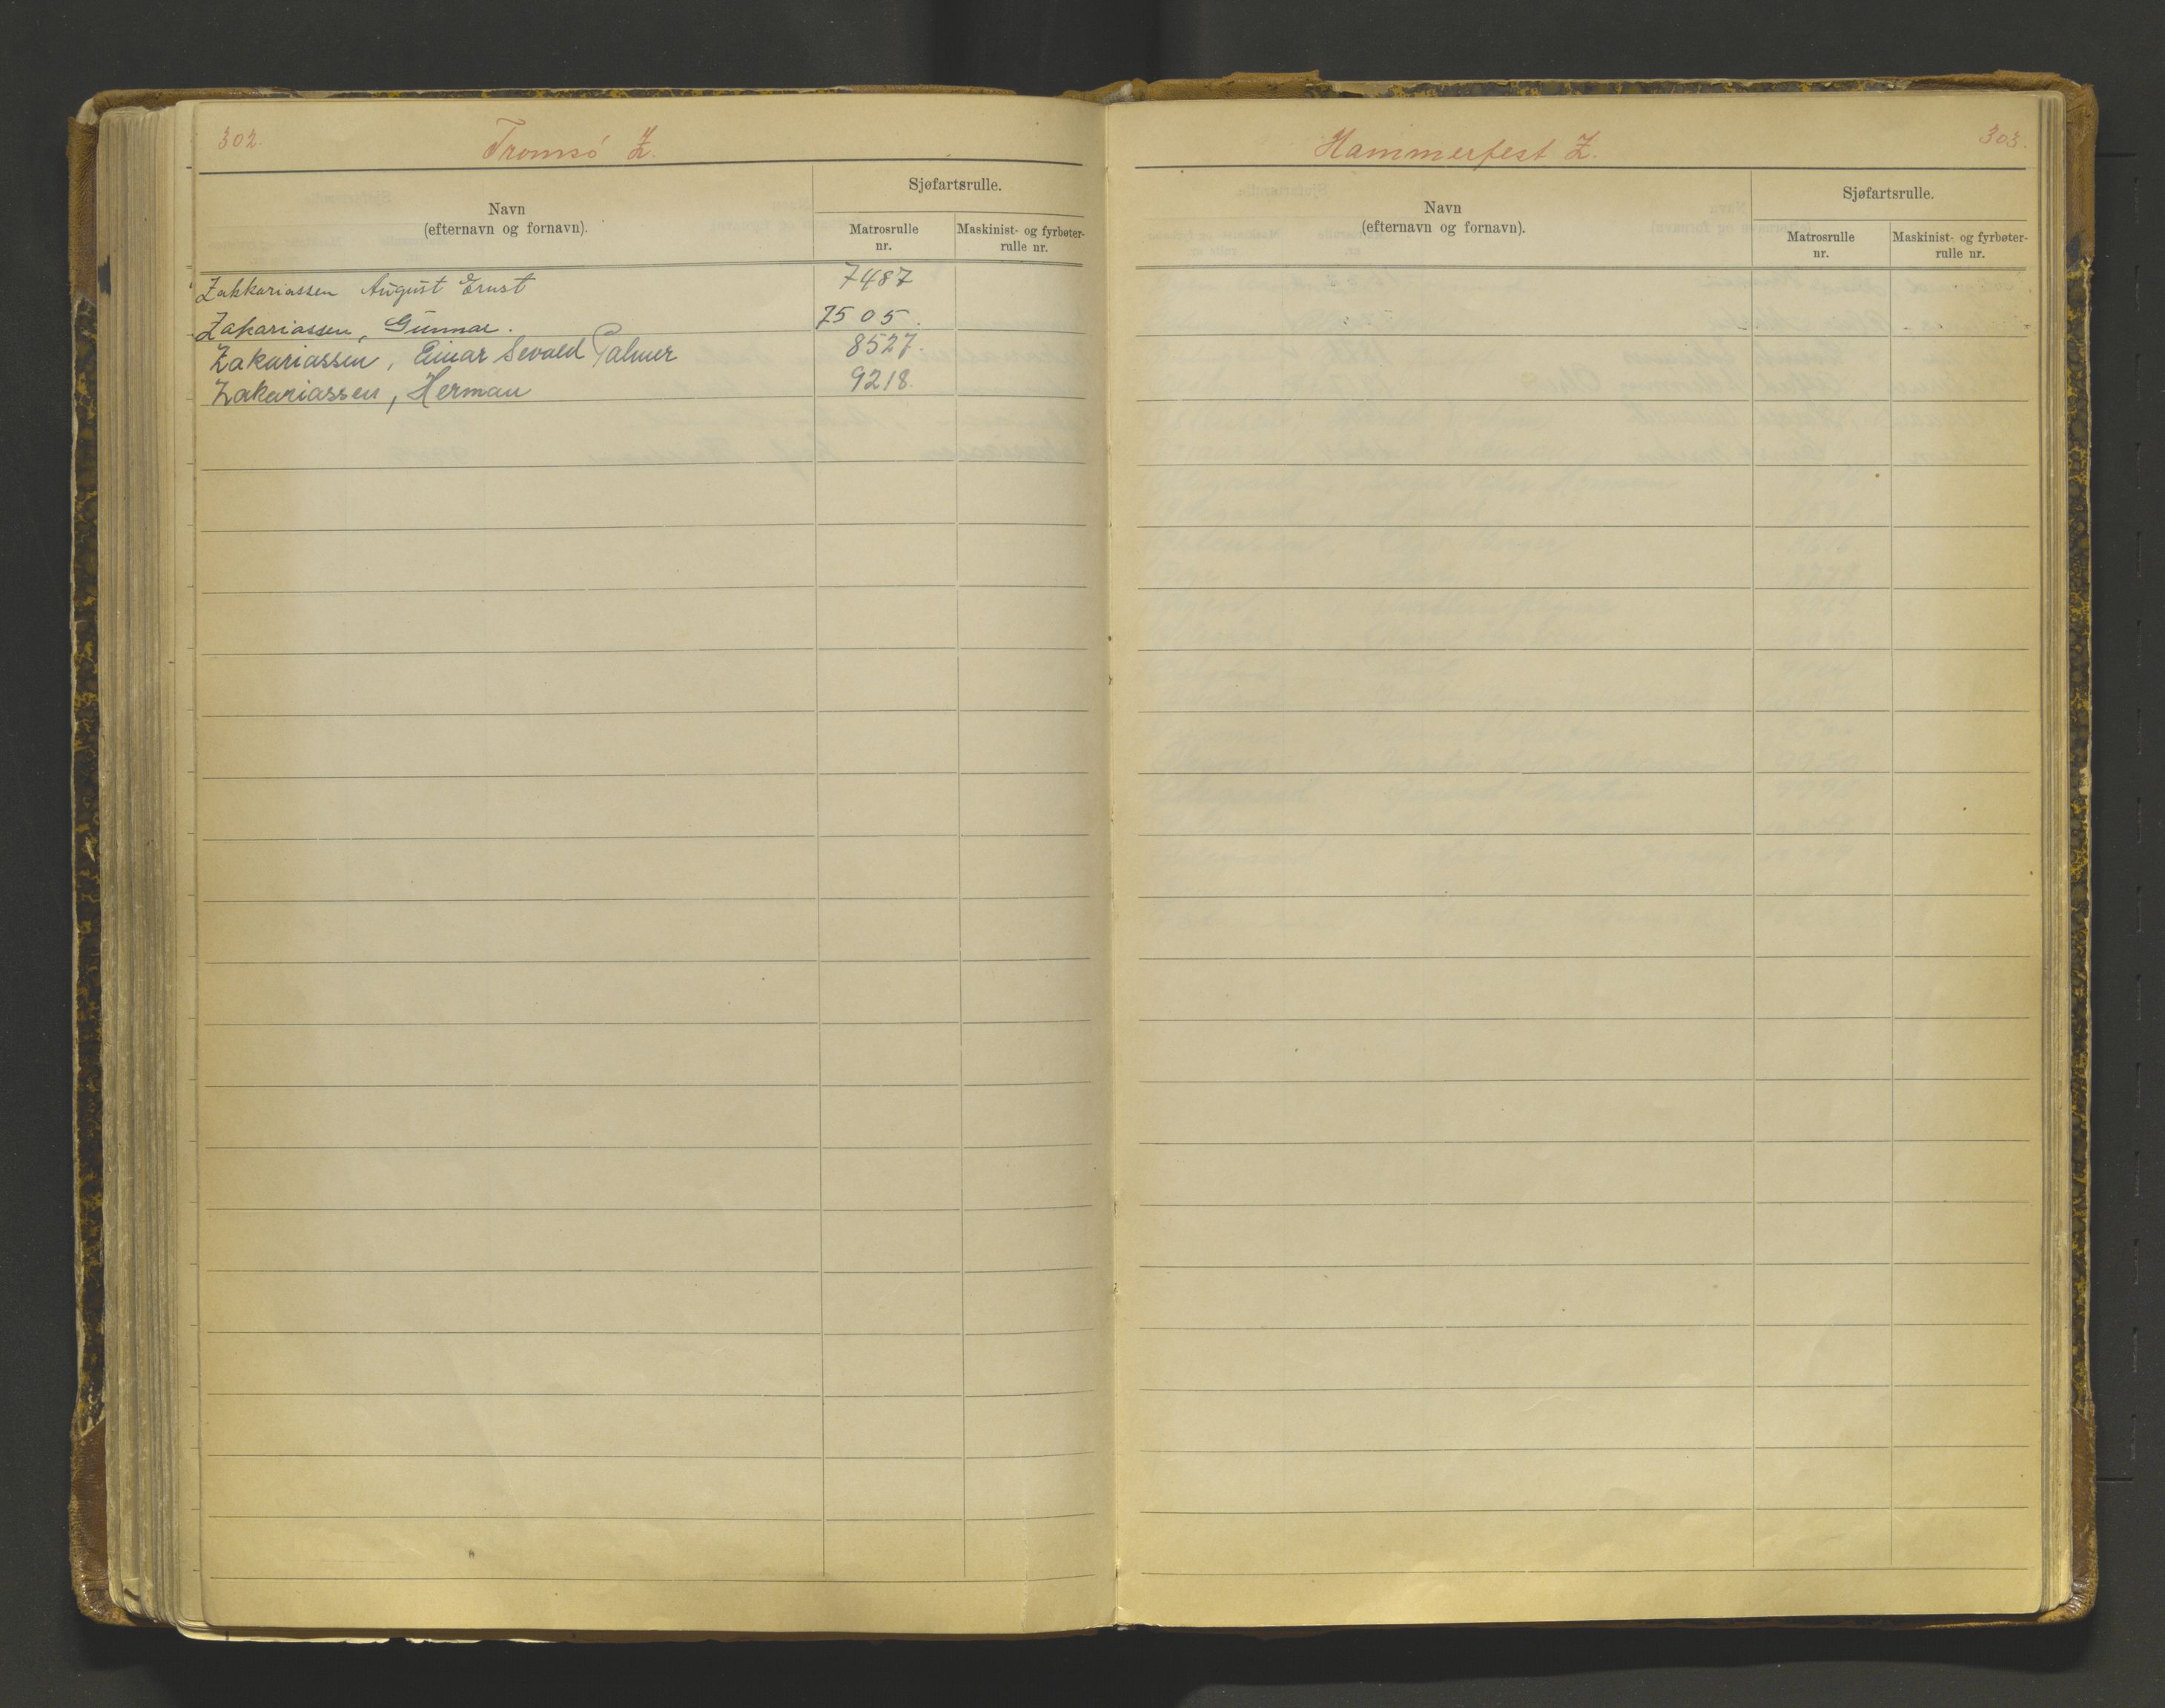 302.
Tromsö Z.
Navn
(efternavn og fornavn).
Sjøfartsrulle.
Matrosrulle
nr.
Maskinist- og fyrbøter-
rulle nr.
Zakkariassen August Ernst 7487
Zakariassen, Gunnar. 7505.
Zakariassen, Einar Sevald Palmer 8527.
Zakariassen, Herman 9218.
Hammerfest Z.
303.
Navn
(efternavn og fornavn).
Sjøfartsrulle.
Matrosrulle
nr.
Maskinist- og fyrbøter-
rulle nr.